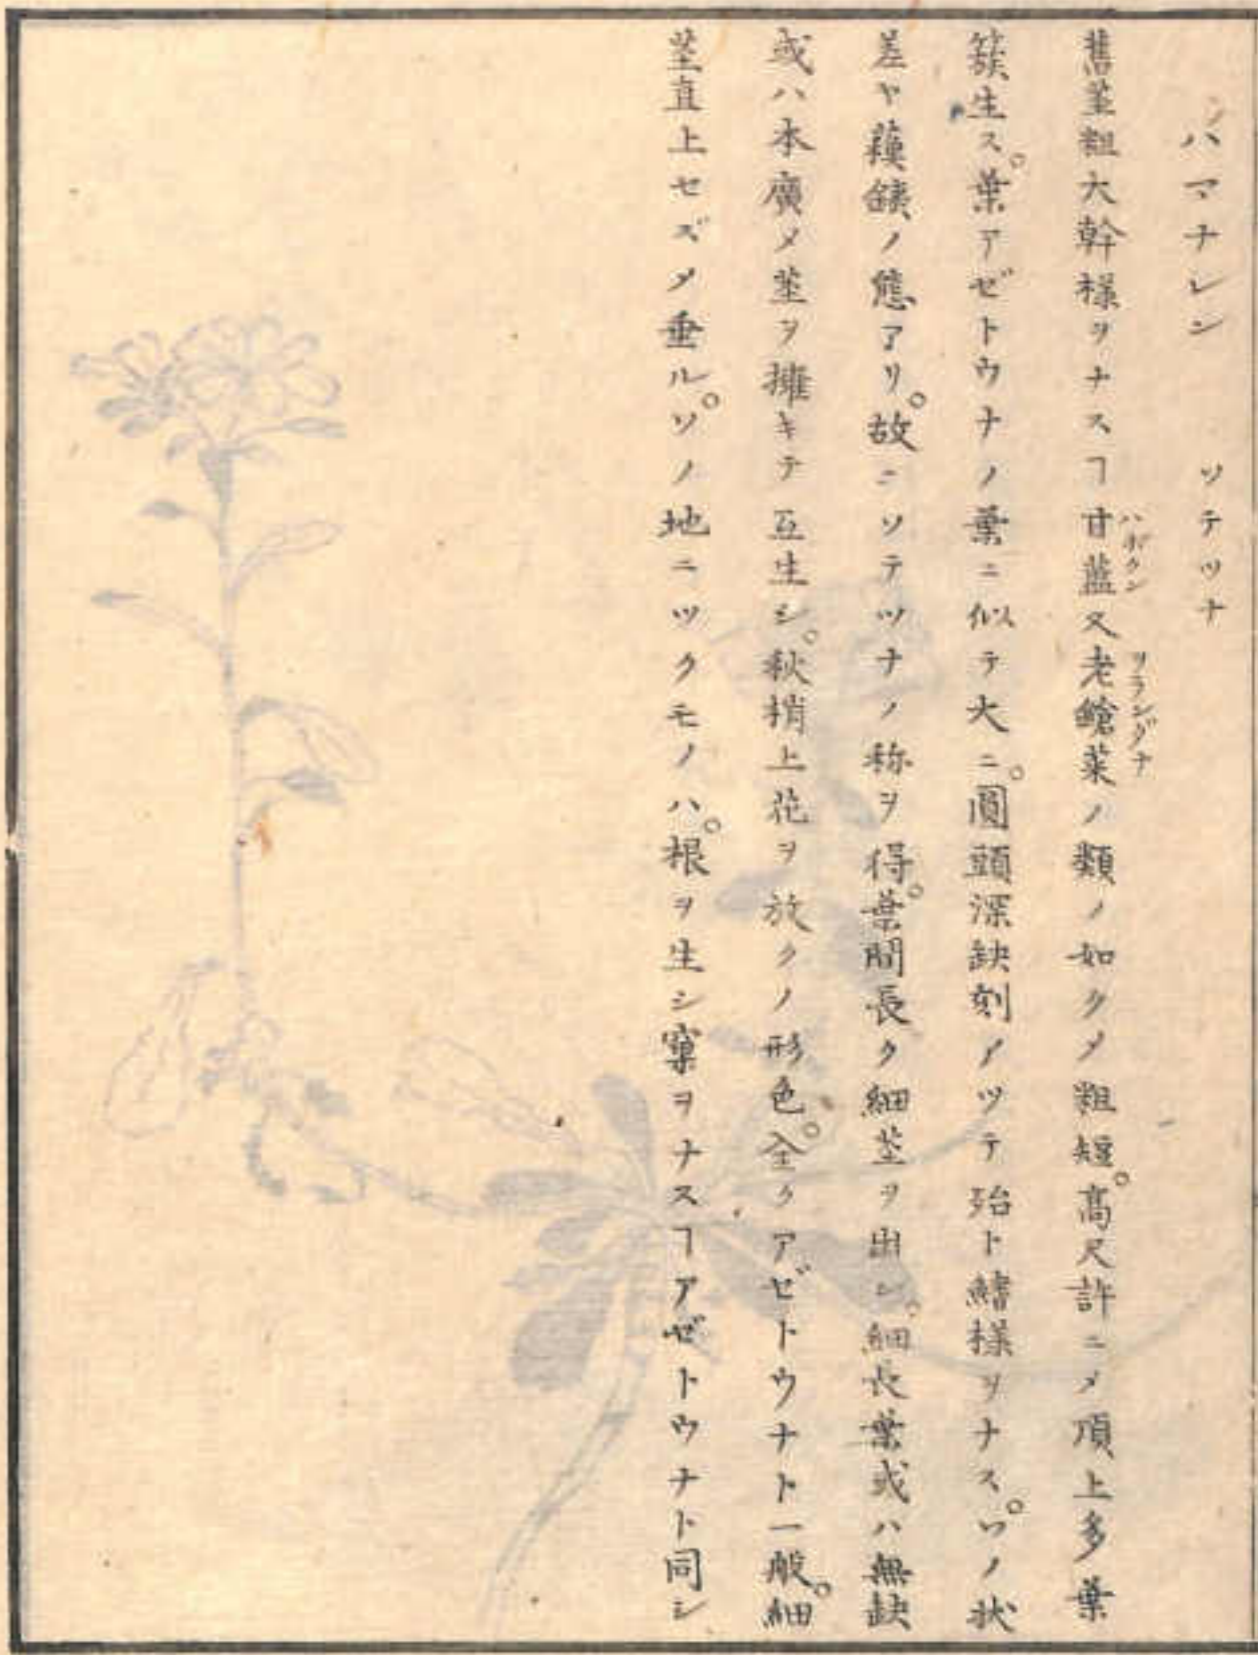 ハマナレン　ソテツナ
舊莖粗大幹様ヲナスヿ甘藍又老鎗菜ノ類ノ如クメ粗短。高尺許ニメ頂上多葉
簇生ス。葉アゼトウナノ葉ニ似テ大ニ。圓頭深缺刻アツテ殆ト鰭様ヲナス。ソノ状
差ヤ蘓鐵ノ態アリ。故ニソテツナノ称ヲ得。葉間長ク細莖ヲ出シ。細長葉或ハ無缺
或ハ本廣メ莖ヲ擁キテ互生シ。秋梢上花ヲ放クノ形色。全クアゼトウナト一般。細
莖直上セズメ垂ル。ソノ地ニツクモノハ。根ヲ生シ窠ヲナスヿアゼトウナト同シ
ハボタン
ヲランダナ